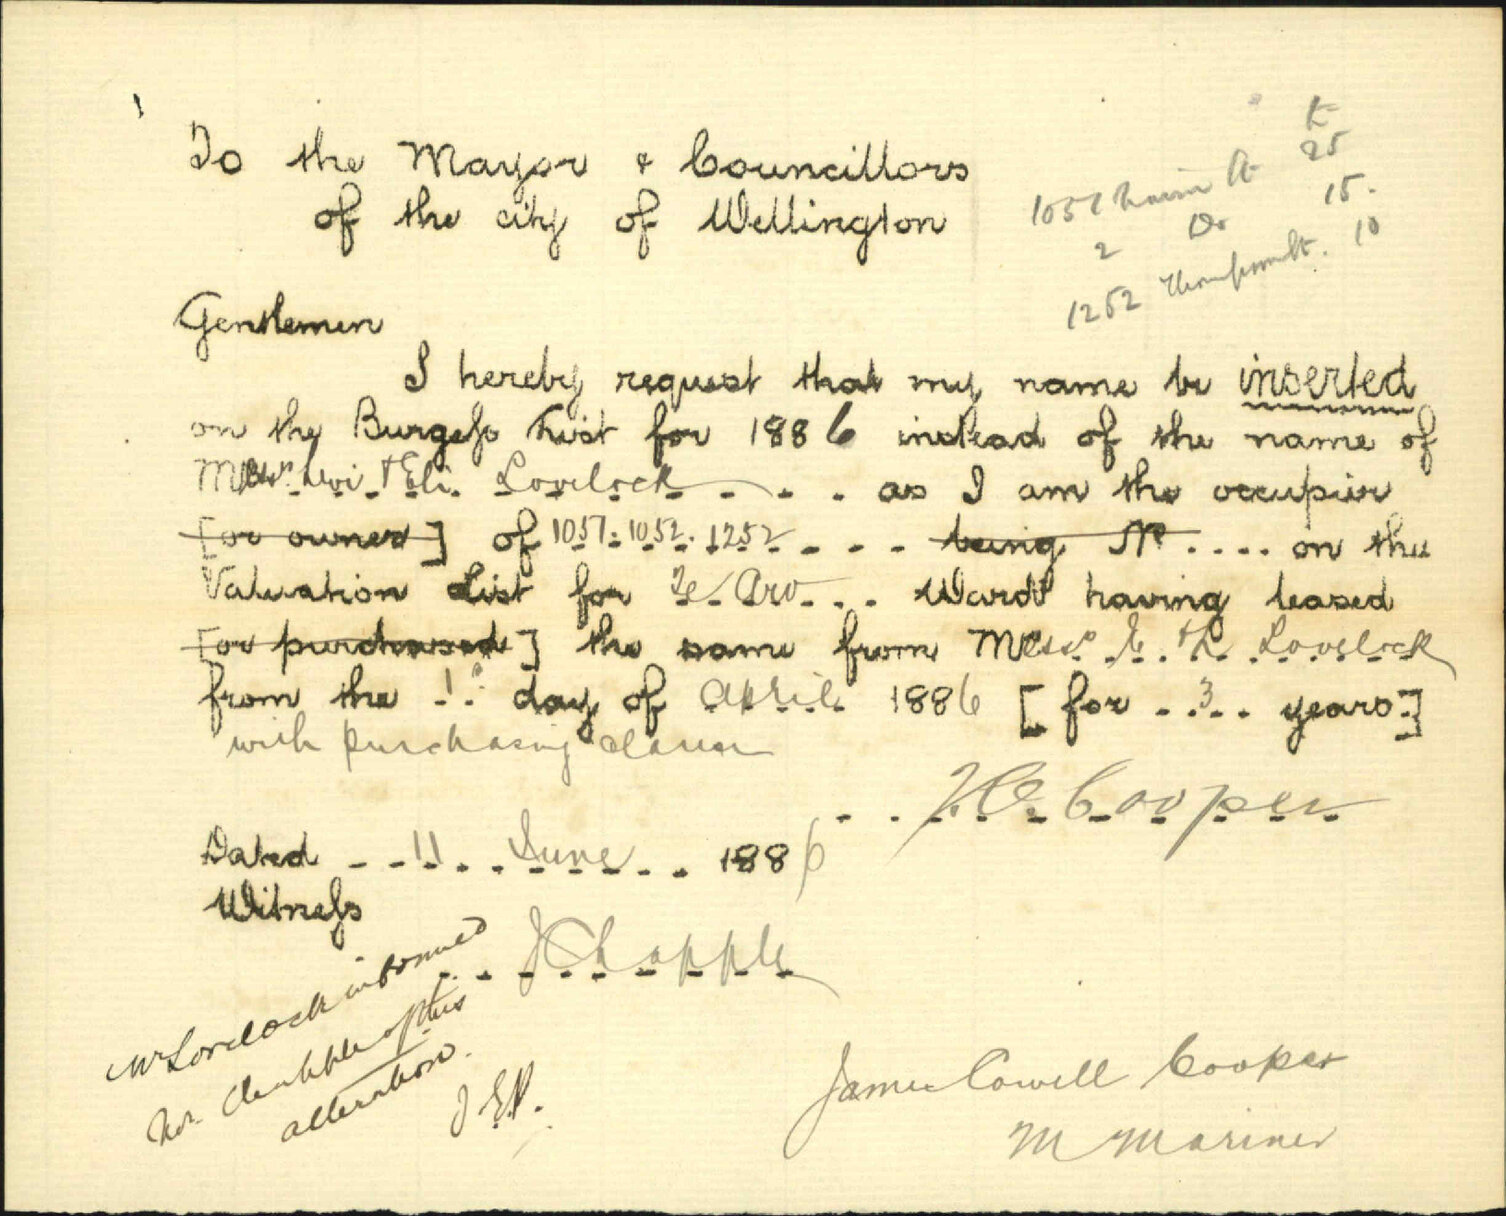 To the Mayor & Councillors
of the city of Wellington
£
1051 St 25
2 Do 15.
1252 Thompson St. 10
Gentlemen
I hereby request that my name be inserted
on the Burgess List for 1886 instead of the name of
Messrs. Levi & Eli Lovelock as I am the occupier
[or owner] of 1051. 1052. 1252 being No .... on the
Valuation List for Te Aro Ward having leased
[or purchased] the same from Messrs E & L Lovelock
from the 1st day of April 1886 [for 3 years]
with purchasing clause
J.C. Cooper
Dated 11 June 1886
Witness
J Chapple
Mr Lovelock informed
Mr. Chapple of this
alteration.
J.E.P.
James Cowell Cooper
M Mariner